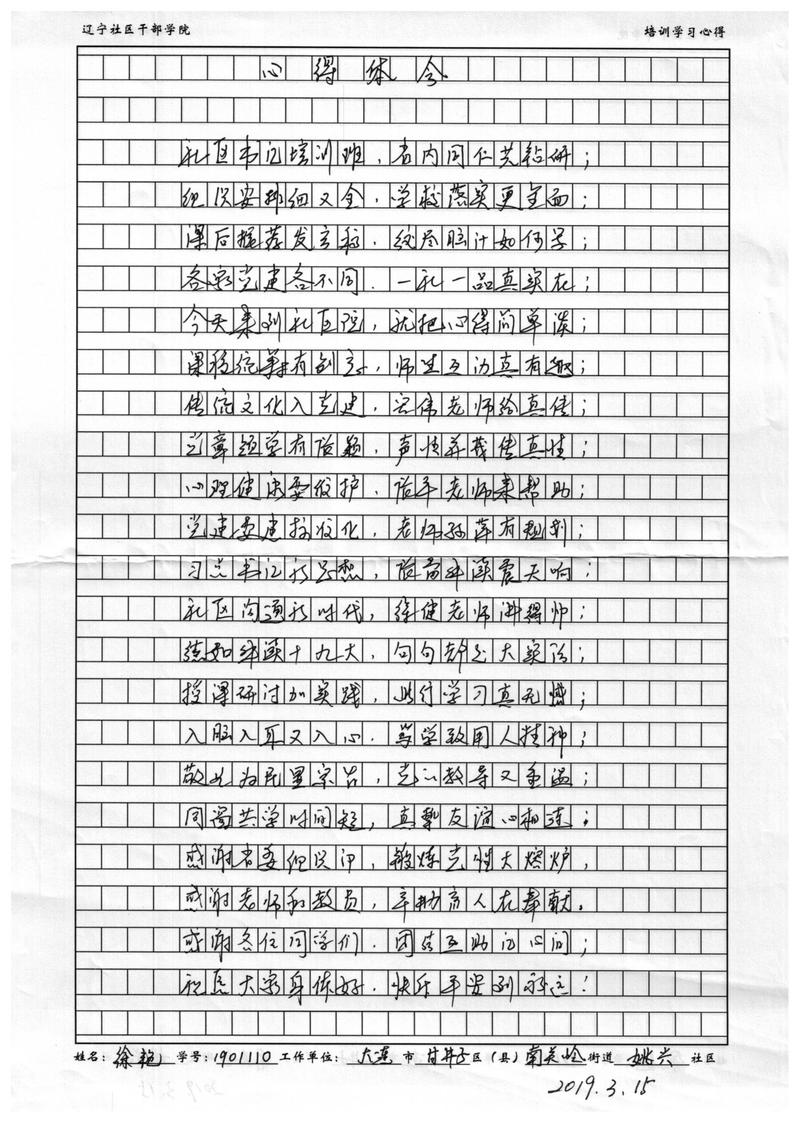 辽宁社区干部学院 培训学习心得
心得体会
社区书记培训班，省内同仁共钻研；
组织安排细又全，学校落实更全面；
课后提荐发言稿，绞尽脑汁如何写；
各家党建各不同，一社一品真实在；
今天来到社区院，就把心得简单谈；
课程统筹有创意，师生互访真有趣；
传统文化入党建，宏伟老师给真传；
党章领学有陈颖，声情并茂传真情；
心理健康要维护，陈平老师来帮助；
党建要建标准化，老师孙萍有规划；
习总书记新思想，陈岗科演震天响；
社区沟通新时代，徐健老师讲得帅；
德如科演十九大，句句都是大实话；
授课研讨加实践，此行学习真无憾；
入脑入耳又入心，笃学致用人精神；
敬业为民重宗旨，党的教导又重温；
同窗共学时间短，真挚友谊心相连；
感谢省委组织部，锻炼党性大熔炉，
感谢老师和教员，辛勤育人在奉献，
感谢各位同学们，团结互助沟心间；
祝愿大家身体好，快乐平安到永远！
姓名：徐艳 学号：1901110 工作单位：大连市甘井子区（县）南关岭街道姚兴社区
2019.3.15